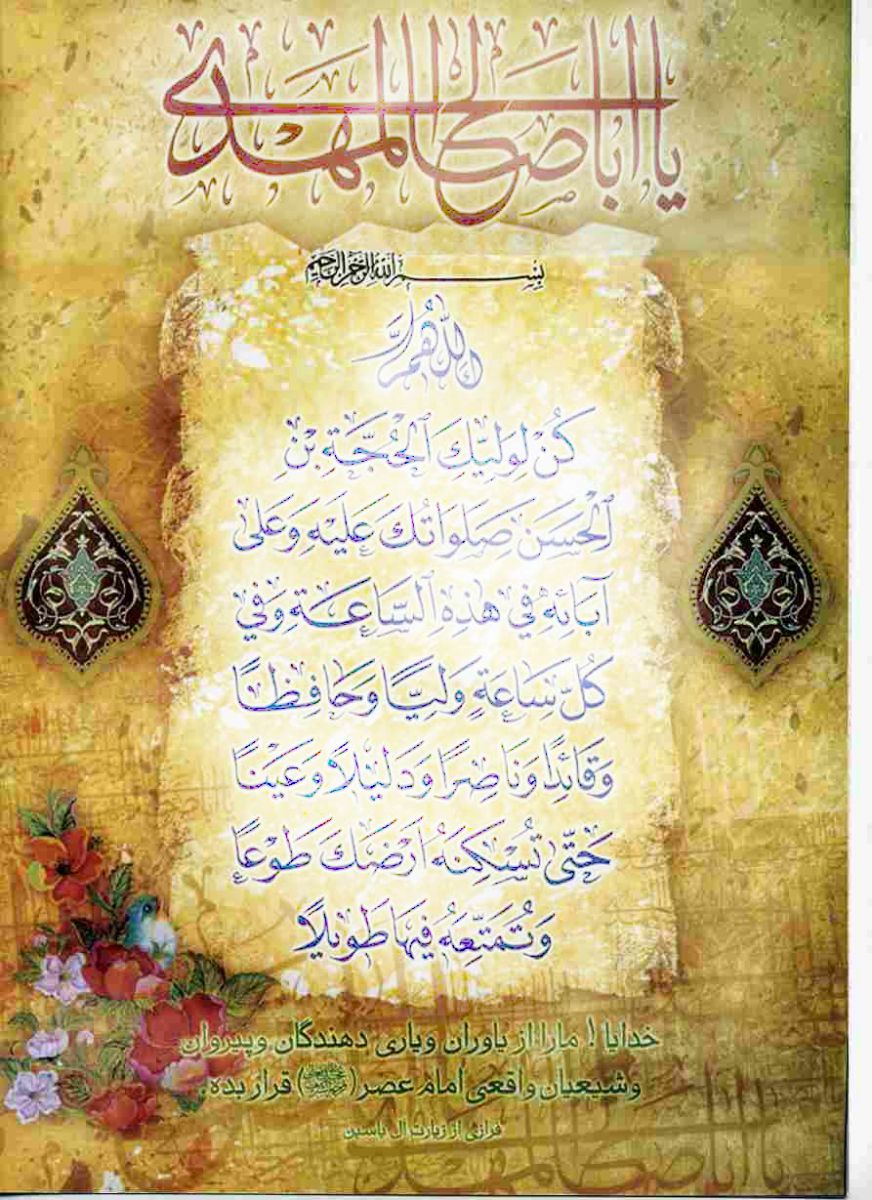 یا اباصالح المهدی
بسم الله الرحمن الرحیم
اللهم
كُنْ لِوَلِيِّكَ ٱلْحُجَّةِ بْنِ
ٱلْحَسَنِ صَلَوَاتُكَ عَلَيْهِ وَعَلَى
آبَائِهِ فِي هَذِهِ ٱلسَّاعَةِ وَفِي
كُلِّ سَاعَةٍ وَلِيًّا وَحَافِظًا
وَقَائِدًا وَنَاصِرًا وَدَلِيلًا وَعَيْنًا
حَتَّى تُسْكِنَهُ أَرْضَكَ طَوْعًا
وَتُمَتِّعَهُ فِيهَا طَوِيلًا
خدایا ! ما را از یاوران و یاری دهندگان و پیروان
و شیعیان واقعی امام عصر ( ) قرار بده.
فرازی از زیارت آل یاسین
یا اباصالح المهدی